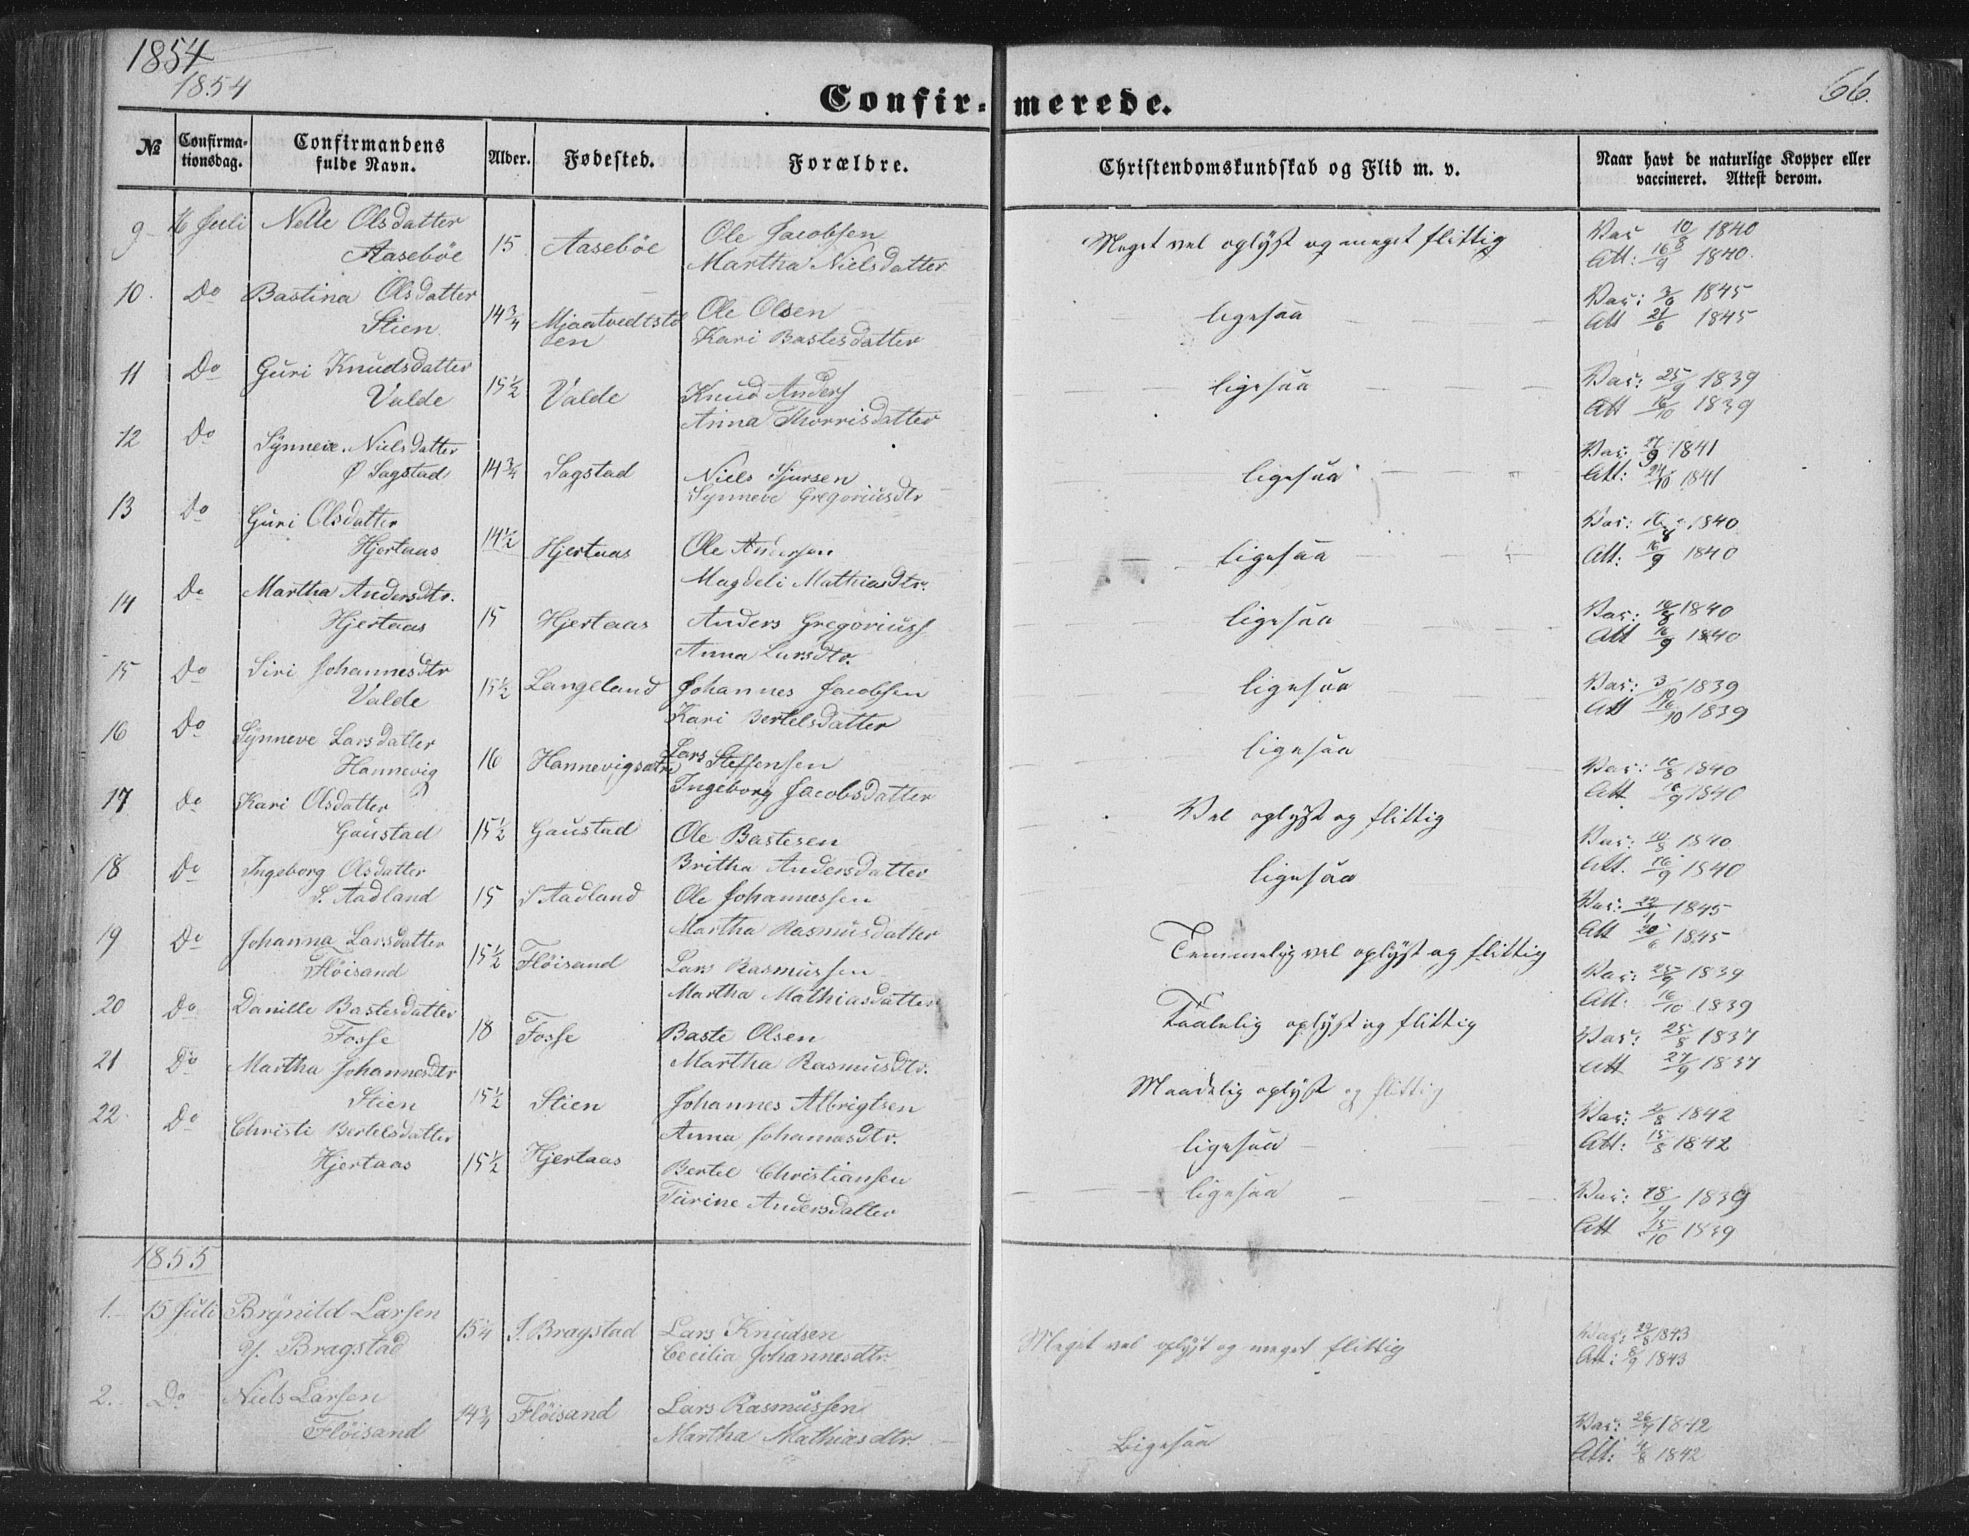 1854
1854
66.
Confir- merede.
№ Confirma-tionsdag. Confirmandens fulde Navn. Alder. Fødested. Forældre. Christendomskundskab og Flid m. v. Naar havt de naturlige Kopper eller vaccineret. Attest derom.
9 16 Juli Nelle Olsdatter Ole Jacobsen Vac 10/8 1840
Aaseböe 15 Aaseböe Martha Nielsdatter Meget vel oplyst og meget flittig Att: 16/9 1840.
10. Do Bastina Olsdatter Ole Olsen Vac: 3/6 1845
Stien 14 3/4 Mjaatvedtstö en Kari Bastesdatter ligesaa Att 21/6 1845
11 Do Guri Knudsdatter Knud Anders Vac: 25/9 1839
Valde 15 1/2 Valde Anna Thorrisdatter ligesaa Att 16/10 1839
12 Do Synneve Nielsdatter Niels Sjursen Vac: 9 1841
Ø Sagstad 14 3/4 Sagstad Synneve Gregoriusdtr ligesaa Att: 24/10 1841
13 Do Guri Olsdatter Ole Andersen Vac: 10/8 1840
Hjertaas 14 1/2 Hjertaas Magdeli Mathiasdtr. ligesaa Att: 16/9 1840
14 Do Martha Andersdtr. Anders Gregoriuss Vac: 10/8 1840
Hjertaas 15 Hjertaas Anna Larsdtr. ligesaa Att 16/9 1840
15 Do Siri Johannesdtr Johannes Jacobsen Vac: 3/10 1839
Valde 15 1/2 Langeland Kari Bertelsdatter ligesaa Att 16/10 1839
16 Do Synneve Larsdatter Lars Steffensen Vac: 10/8 1840
Hannevig 16 Hannevigsætre Ingeborg Jacobsdatter ligesaa Att 16/9 1840
17 Do Kari Olsdatter Ole Bastesen Vac: 10/8 1840
Gaustad 15 1/2 Gaustad Britha Andersdatter Vel oplyst og flittig Att. 16/9 1840
18 Do Ingeborg Olsdatter Ole Johannessen Vac: 1845
S. Aadland 15 S Aadland Martha Rasmusdatter ligesaa Att 20/6 1845
19 Do Johanna Larsdatter Lars Rasmussen Vac: 25/9 1839
Flöisand 15 1/2 Flöisand Martha Mathiasdatter Temmelig vel oplyst og flittig Att: 16/10 1839
20 Do Danille Bastesdatter Baste Olsen Vac: 25/8 1837
Fosse 18 Fosse Martha Rasmusdtr. Taalelig oplyst og flittig Att 27/9 1837
21 Do Martha Johannesdtr Johannes Albrigtsen Maadelig oplyst og flittig Vac: 1842
Stien 15 1/2 Stien Anna Johannesdtr. ligesaa Att: 15/8 1842
22 Do Christi Bertelsdatter Bertel Christiansen Vac: 18/9 1839
Hjertaas 15 1/2 Hjertaas Turine Andersdatter ligesaa Att 15/10 1839
1855
1. 15 Juli Brynild Larsen Lars Knudsen Vac: 29/8 1843
Y. Bragstad 15 1/4 Y. Bragstad Cecilia Johannesdtr. Meget vel oplyst og meget flittig Att: 8/9 1843
2. Do Niels Larsen Lars Rasmussen Vac: 1842
Flöisand 14 3/4 Flöisand Martha Mathiasdtr. Ligesaa Att: 1842